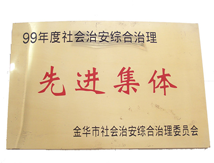 99年度社会治安综合治理
先进集体
金华市社会治安综合治理委员会